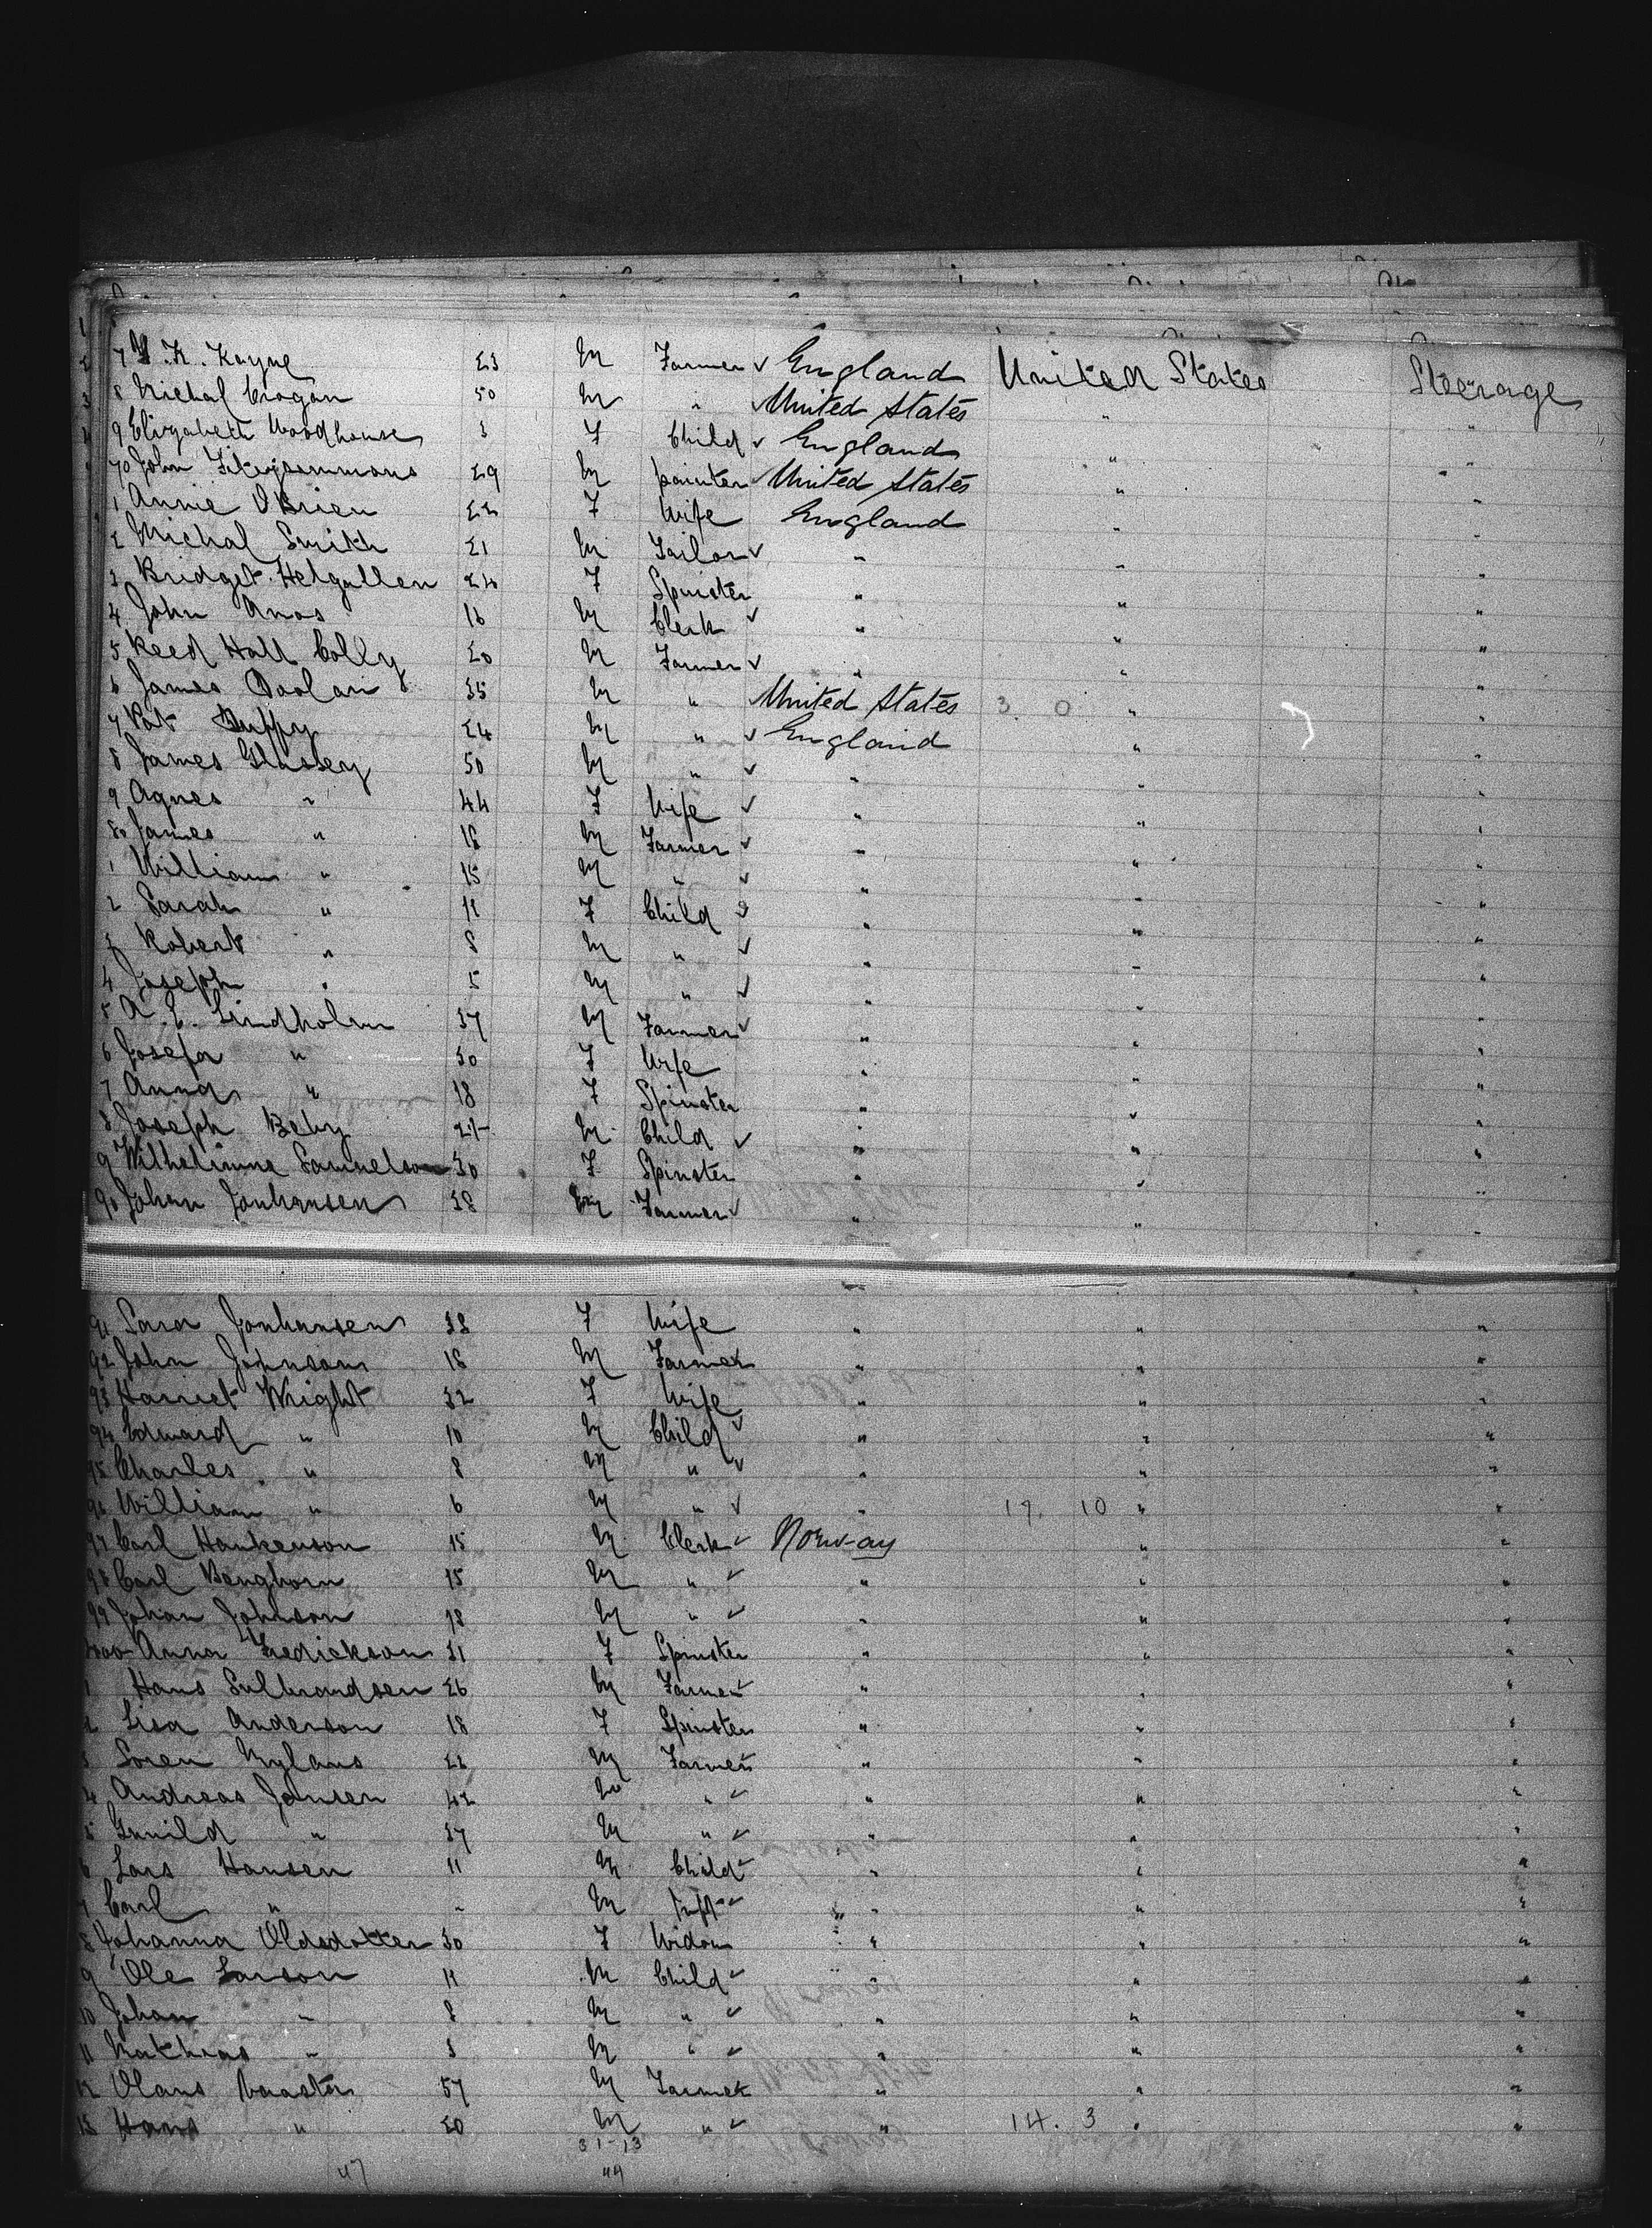 7 H. K. Kayne 23 M Farmer ✓ England United States Steerage
8 Michal Crogan 50 M " ✓ United States " "
9 Elizabeth Woodhouse 3 F Child ✓ England " "
70 John Fitzsommons 29 M painter United States " "
1 Annie O'Brien 22 F Wife England " "
2 Michal Smith 21 M Tailor ✓ " " "
3 Bridget Helgallen 24 F Spinster " " "
4 John Anos 16 M Clerk ✓ " " "
5 Reed Hall Colly 20 M Farmer ✓ " " "
6 James Doolan 35 M " United States 3. 0 " "
7 Pat Duffy 24 M " ✓ England " "
8 James Glassey 50 M " ✓ " " "
9 Agnes " 44 F Wife ✓ " " "
80 James " 18 M Farmer ✓ " " "
1 William " 15 M " ✓ " " "
2 Sarah " 11 F Child ✓ " " "
3 Robert " 8 M " ✓ " " "
4 Joseph " 5 M " ✓ " " "
5 A. E. Lindholm 37 M Farmer ✓ " " "
6 Josefa " 30 F Wife " " "
7 Anna " 18 F Spinster " " "
8 Joseph M Child ✓ " " "
9 Wilhelmina Samuelson 30 F Spinster " " "
90 Johan Jonhansen 38 M Farmer ✓ " " "
91 Sara Jonhansen 38 F Wife " " "
92 John Johnson 18 M Farmer " " "
93 Harriet Wright 32 F Wife " " "
94 Edward " 10 M Child ✓ " " "
95 Charles " 8 M " ✓ " " "
96 William " 6 M " ✓ " 17. 10 " "
97 Carl Hankenson 15 M Clerk ✓ Norway " "
98 Carl Benghorn 15 M " ✓ " " "
99 Johan Johnson 18 M " ✓ " " "
Anna Fredickson 31 F Spinster " " "
1 Hans Gulbrandsen 26 M Farmer " " "
2 Lisa Anderson 18 F Spinster " " "
3 Soren Nylans 22 M Farmer " " "
4 Andreas Jensen 42 M " ✓ " " "
5 Gunild " 37 M " ✓ " " "
6 Lars Hansen 11 M Child " " "
7 Carl " - M Inft ✓ " " "
8 Johanna Oldsdotter 30 F Widow " " "
9 Ole Larson 11 M Child ✓ " " "
10 Johan " 8 M " ✓ " " "
11 Mathias " 3 M " ✓ " " "
12 Olaus 57 M Farmer " " "
13 Hans " 20 M " ✓ " 14. 3 " "
31-13
47 44